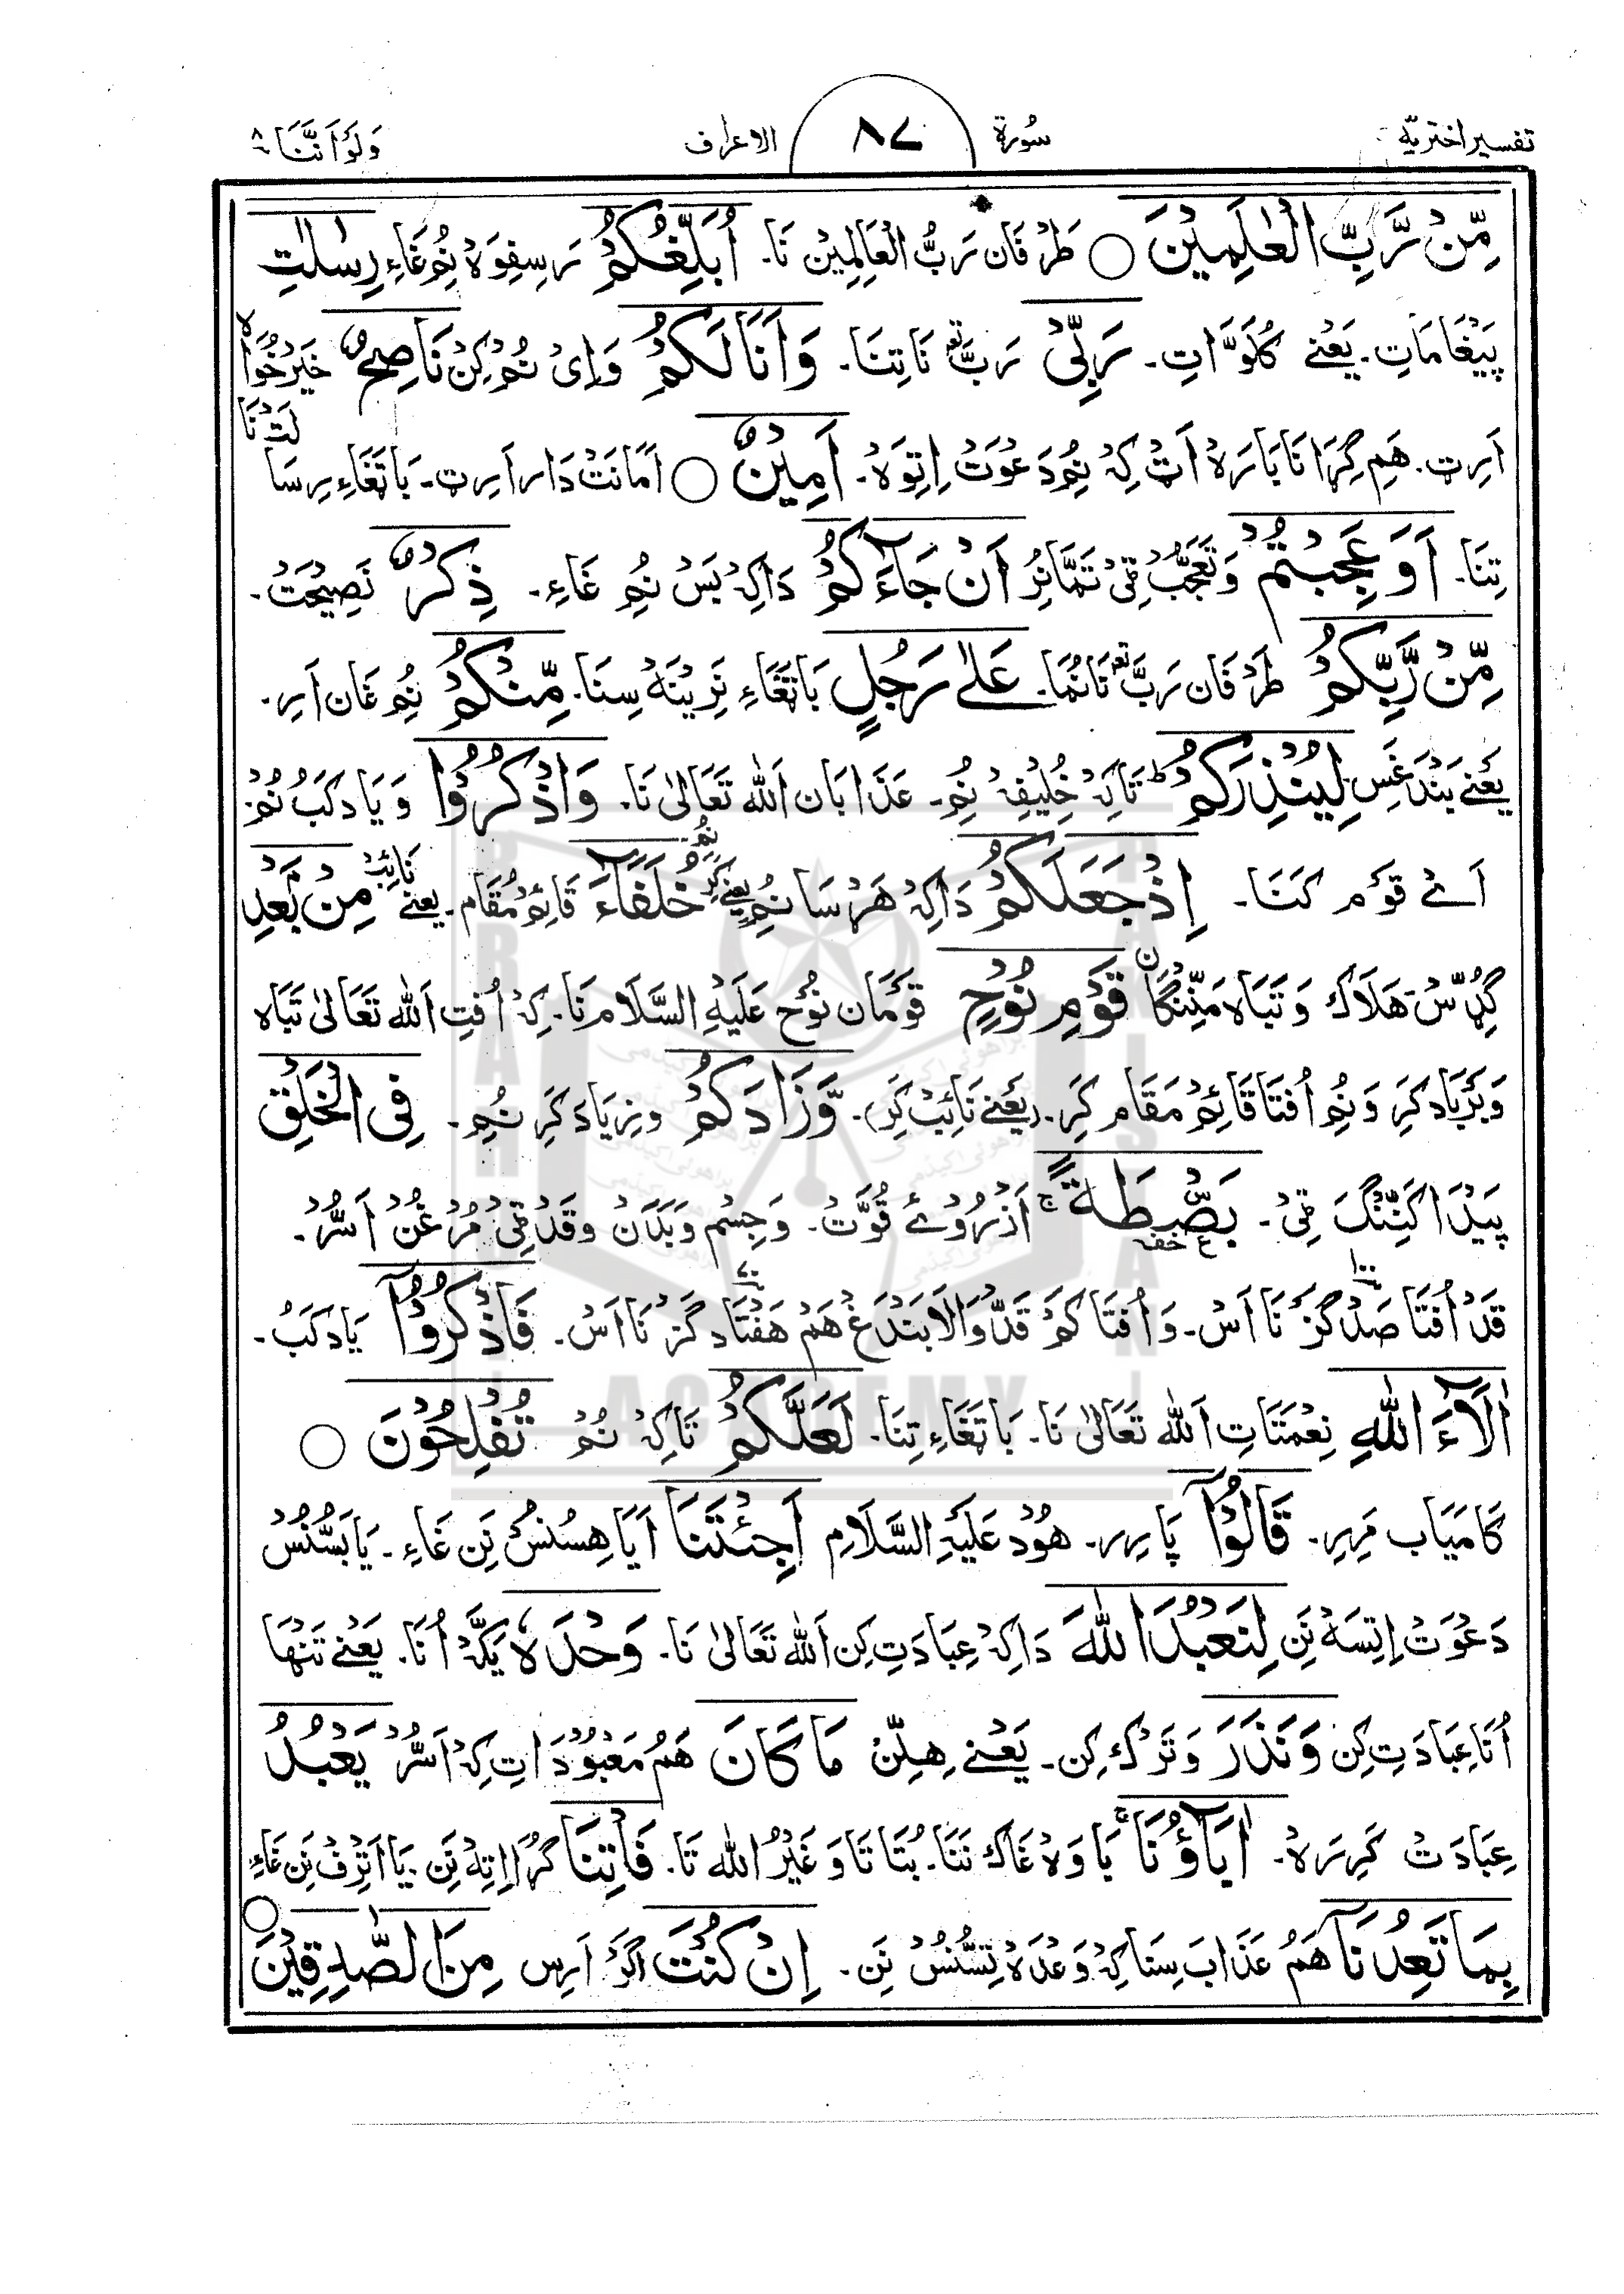 تفسیر اختریّه سُورة ۸۷ الاعراف وَلَوْاَنَّنَا ۸
مِّنْ رَّبِّ الْعٰلَمِیْنَ ○ طَرْفَان رَبُّ الْعَالَمِیْن نَا۔ اُبَلِّغُکُمْ رَسِفِوَہْ نُمْ غَاءِ رِسٰلٰتِ
پَیْغَامَاتِ۔ یَعْنے کُلَوَّاتِ۔ رَبِّیْ رَبَّ تع نَاتِنَا۔ وَاَنَالَکُمْ وَاِیْ نُمْ کِنْ نَاصِحٌ خَیْرْخُوَاہ
اَرِٹ۔ ھَم کِرَا نَا بَارَہْ اَٹْ کِہْ نُمْ دَعْوَتْ اِتِوَہْ۔ اَمِیْنٌ ○ اَمَانَتْ دَار اَرِٹ۔ بَاتَغَاءِ رِسَا لَتْ نَا
تِنَا۔ اَوَعَجِبْتُمْ وَتَعَجُّبْ قِیْ تَمَّانُرْ اَنْ جَآءَکُمْ دَاکِہْ بَسْ نُمْ غَاءِ۔ ذِکْرٌ نَصِیْحَتْ۔
مِّنْ رَّبِّکُمْ طَرْفَان رَبَّ تع نَانُمَا۔ عَلٰی رَجُلٍ بَاتَغَاءِ نَرِیْنَہْ سِنَا۔ مِّنْکُمْ نُمْ غَان اَرِ۔
یَعْنے بَنْدَغَسِ لِیُنْذِرَکُمْ ط تَاکِہْ خُلِیْفِہْ نُمْ۔ عَذَابَان اَللّٰہ تَعَالٰی نَا۔ وَاذْکُرُوْا وَ یَادکَبُ نُمْ
اَےْ قَوْم کَنَا۔ اِذْجَعَلَکُمْ دَاکِہْ ھَرْسَا نُمْ یعنے کَرِ نُمْ خُلَفَآءَ قَائِمْ مُقَام۔ یعنے نَائِبْ مِنْ بَعْدِ
گُڈّسْ ھَلَاکْ وَ تَبَاہ مَنِّنْگَانْ قَوْمِ نُوْحٍ قَوْمَان نُوْح عَلَیْہِ السَّلَام نَا۔ کِہْ اُفْتِ اَللّٰہ تَعَالٰی تَبَاہ
وَبَرْبَاد کَرِ وَنُمْ اُفْتَا قَائِمْ مَقَام کَرِ۔ (یَعْنے نَائِبْ کَرِ)۔ وَّزَادَکُمْ و زِیَاد کَرِ نُمْ۔ فِی الْخَلْقِ
پَیْدَا کَنِّنْگ قِیْ۔ بَصْۜطَۃً ج اَزْرُوْےْ قُوَّتْ۔ وَجِسْم وَبَدَنْ وقَدْ قِیْ مُرْغُنْ اَسُّرْ۔
قَدْ اُفْتَا صَدْ ۱۰۰ گَزْ نَا اَسْ۔ وَ اُفْتَا کَمْ قَدّوَالَا بَنْدَغْ ھَمْ ھَفْتَاد ۷۰ گَزْ نَا اَسْ۔ فَاذْکُرُوْۤا یَاد کَبُ۔
اٰلَآءَ اللّٰہِ نِعْمَتَاتِ اَللّٰہ تَعَالٰی نَا۔ بَاتَغَاءِ تِنَا۔ لَعَلَّکُمْ تَاکِہْ نُمْ تُفْلِحُوْنَ ○
کَامْیَاب مَرِیر۔ قَالُوْۤا پَارِر۔ ھُوْد عَلَیْہِ السَّلَام اَجِئْتَنَا اَیَا ھِسُنُسْ نَن غَاءِ۔ یَا بَسُّنُسْ
دَعْوَتْ اِتِسَہْ نَن لِنَعْبُدَ اللّٰہَ دَاکِہْ عِبَادَتِ کِن اَللّٰہ تَعَالٰی نَا۔ وَحْدَہٗ یَکَّہْ اُنَا۔ یَعْنے تَنْھَا
اُنَا عِبَادَتِ کِن وَنَذَرَ وَتَرْک کِن۔ یَعْنے ھِلِّنْ مَاکَانَ ھَمُ مَعْبُوْدَاتِ کِہْ اَسُّرْ یَعْبُدُ
عِبَادَتْ کَرِرَہْ۔ اٰبَآؤُنَا ج بَاوَہْ غَاکْ نَنَا۔ بُتَاتَا وَ غَیْرُ اللّٰہ تَا۔ فَاْتِنَا گُڑَا اِتِہْ نَن۔ یَا اَتْرِفْ نَن غَاءِ
بِمَا تَعِدُنَاۤ ھَمُ عَذَابَ سِتَا کِہْ وَعْدَہْ تِسُّنُسْ نَن۔ اِنْ کُنْتَ اَگَرْ اَرِس مِنَ الصّٰدِقِیْنَ ○